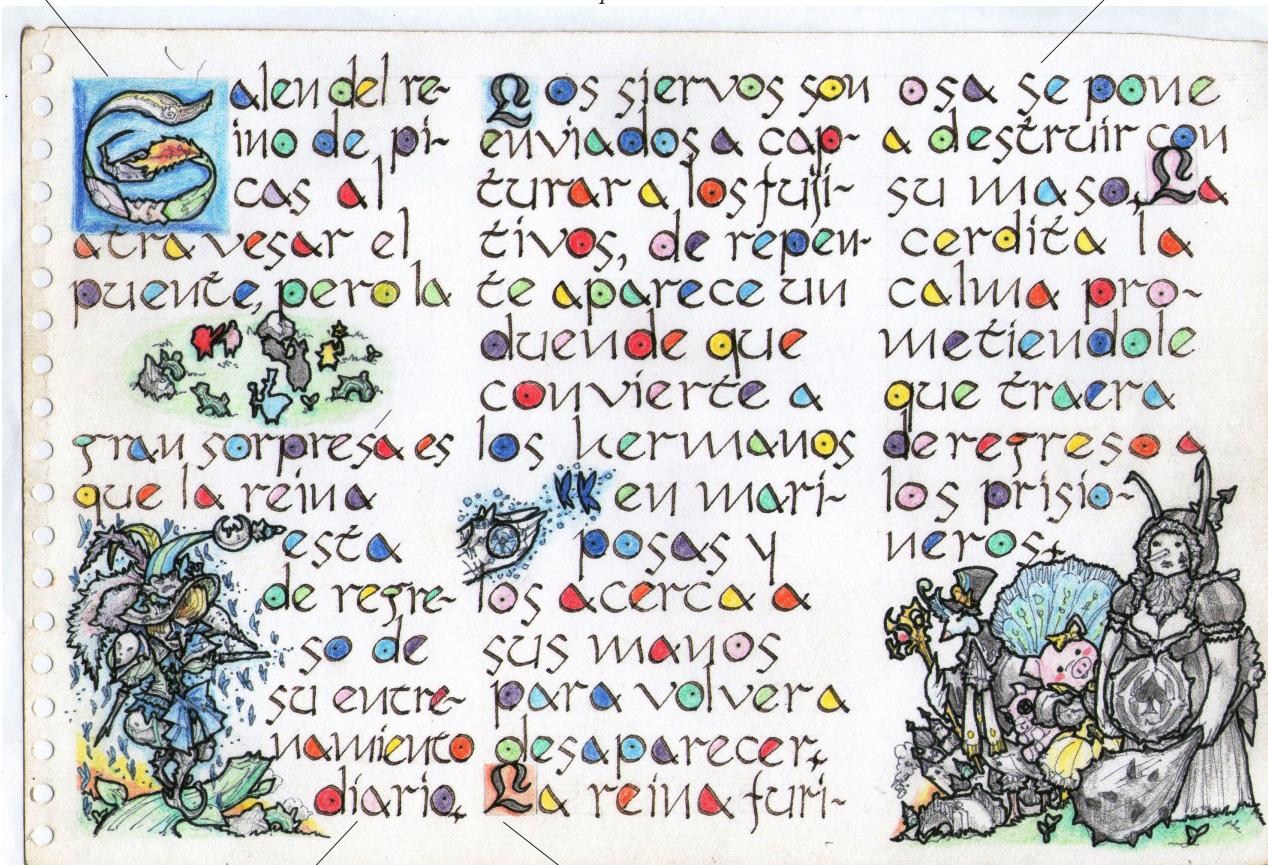 Salen del re-
ino de pi-
cas al
atravesar el
puente, pero la
gran sorpresa es
que la reina
esta
de regre-
so de
su entre-
namiento
diario.
Los siervos son
enviados a cap-
turar a los fugi-
tivos, de repen-
te aparece un
duende que
convierte a
los hermanos
en mari-
posas y
los acerca a
sus manos
para volver a
desaparecer.
La reina furi-
osa se pone
a destruir con
su maso. La
cerdita la
calma pro-
metiendole
que traera
de regreso a
los prisio-
neros.